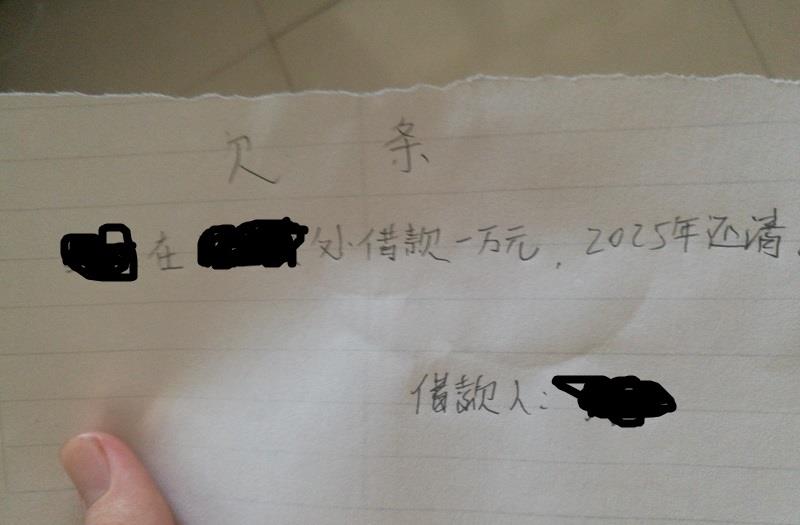 欠条
在 处借款一万元，2025年还清.
借款人：